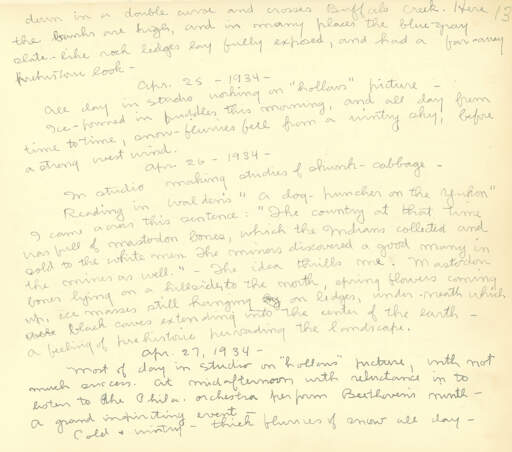 down in a double curve and crosses Buffalo Creek. Here 13
the banks are high, and in many places the blue-gray
slate-like rock ledges lay fully exposed, and had a far-away
prehistoric look -
Apr. 25 - 1934 -
All day in studio working on "hollows" picture -
Ice-formed in puddles this morning, and all day from
time to time, snow-flurries fell from a wintry sky, before
a strong west wind.
Apr. 26 - 1934 -
In studio making studies of skunk-cabbage -
Reading in Walden's "A dog-puncher on the Yukon"
I came across this sentence: "The country at that time
was full of mastodon bones, which the Indians collected and
sold to the white men. The miners discovered a good many in
the mines as well." - The idea thrills me! Mastodon
bones lying on a hillside to the north, spring flowers coming
up, ice masses still hanging on ledges, under-neath which
were black caves extending into the center of the earth -
a feeling of prehistoric pervading the landscape.
Apr. 27, 1934 -
Most of day in studio on "hollows" picture, with not
much success. At midafternoon, with reluctance in to
listen to the Phila. orchestra perform Beethoven's ninth -
A grand inspiring event -
Cold & wintry - thick flurries of snow all day -